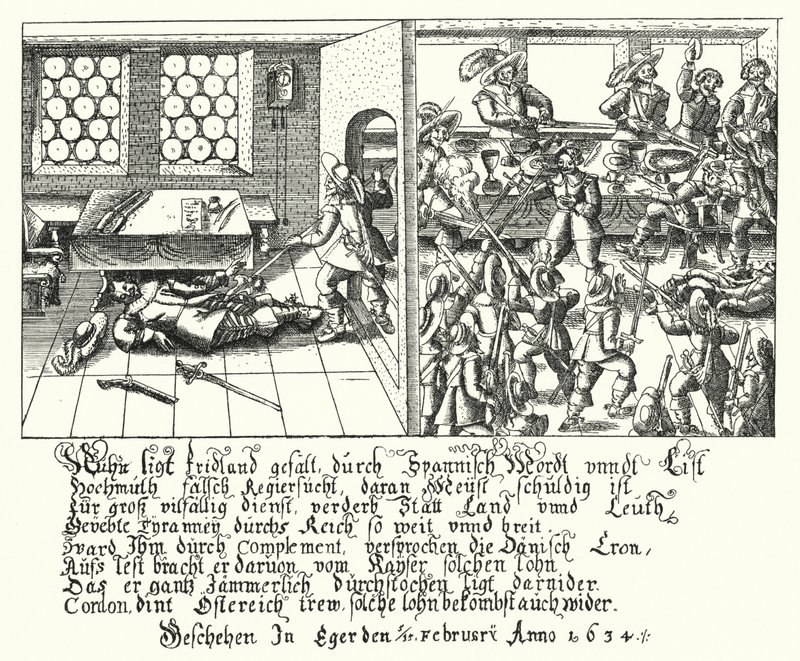 Nuhn ligt Fridland gefält, durch Spannisch Mordt vnndt List
Hochmuth falsch Regiersücht, daran Meÿst schüldig ist
Für groß vilfällig dienst, verderb Statt Land vnnd Leuth,
Gevebte Tÿranneÿ durchs Reich so weit vnnd breit.
Ward Ihm durch Complement, versprochen die Dänisch Cron,
Aufs lest bracht er daruon, vom Kaÿser solchen lohn
Das er gantz Jämmerlich durchstochen ligt darnider.
Cordon, dint Ostereich trew, solche lohn bekombst auch wider.
Geschehen In Eger den 5/15. Februarÿ Anno 1634